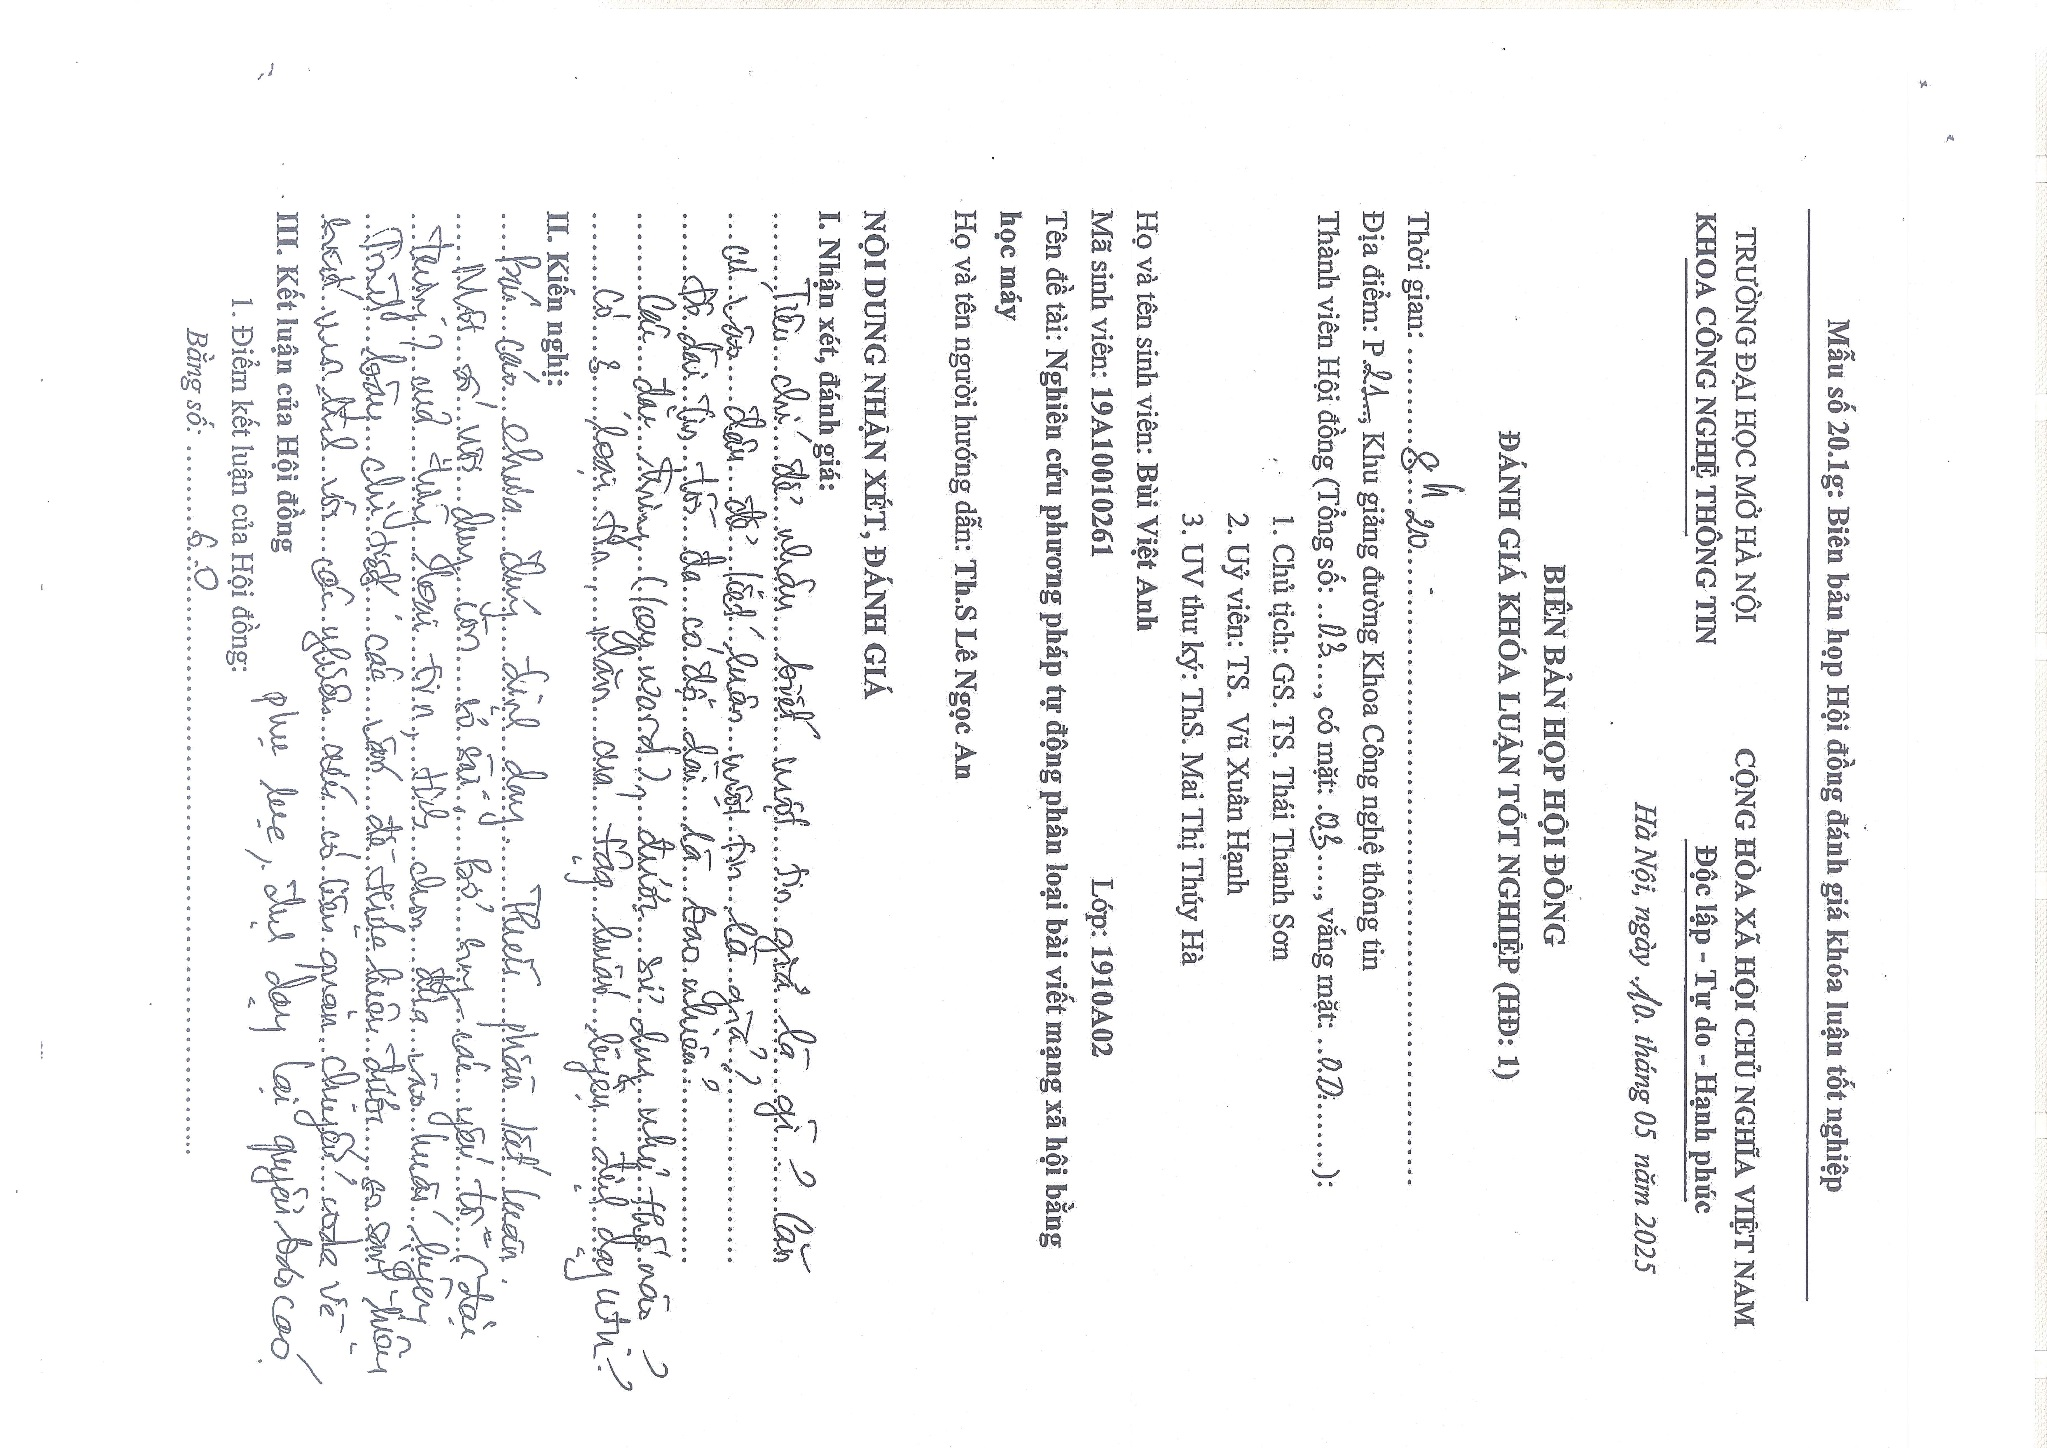 Mẫu số 20.1g: Biên bản họp Hội đồng đánh giá khóa luận tốt nghiệp
TRƯỜNG ĐẠI HỌC MỞ HÀ NỘI
KHOA CÔNG NGHỆ THÔNG TIN
CỘNG HÒA XÃ HỘI CHỦ NGHĨA VIỆT NAM
Độc lập - Tự do - Hạnh phúc
Hà Nội, ngày 10 tháng 05 năm 2025
BIÊN BẢN HỌP HỘI ĐỒNG
ĐÁNH GIÁ KHÓA LUẬN TỐT NGHIỆP (HĐ: 1)
Thời gian: 8h20
Địa điểm: P 21, Khu giảng đường Khoa Công nghệ thông tin
Thành viên Hội đồng (Tổng số: 03, có mặt: 03, vắng mặt: 00):
1. Chủ tịch: GS. TS. Thái Thanh Sơn
2. Uỷ viên: TS. Vũ Xuân Hạnh
3. UV thư ký: ThS. Mai Thị Thúy Hà
Họ và tên sinh viên: Bùi Việt Anh
Mã sinh viên: 19A10010261 Lớp: 1910A02
Tên đề tài: Nghiên cứu phương pháp tự động phân loại bài viết mạng xã hội bằng
học máy
Họ và tên người hướng dẫn: Th.S Lê Ngọc An
NỘI DUNG NHẬN XÉT, ĐÁNH GIÁ
I. Nhận xét, đánh giá:
Tiêu chí để nhận biết một tin giả là gì? Căn
cứ vào đâu để kết luận một tin là giả?
Độ dài tin tối đa có độ dài là bao nhiêu?
Cái đầu trùng (loay word) dưới sử dụng như thế nào?
Có 2 loại tin, phần cứ huấn luyện
II. Kiến nghị:
Báo cáo chưa đúng định dạng. Thiếu phần kết luận.
Một số nội dung còn sơ sài, bổ sung các yếu tố (đặc
trưng? cụ từng loại tin, tính chọn đưa vào huấn luyện
Trình bày chi tiết các vấn đề thực hiện được, so sánh hiệu
với các nghiên cứu có liên quan, chuyển code về
phụ lục, chỉnh lại quyển báo cáo
III. Kết luận của Hội đồng
1. Điểm kết luận của Hội đồng:
Bằng số: 6.0